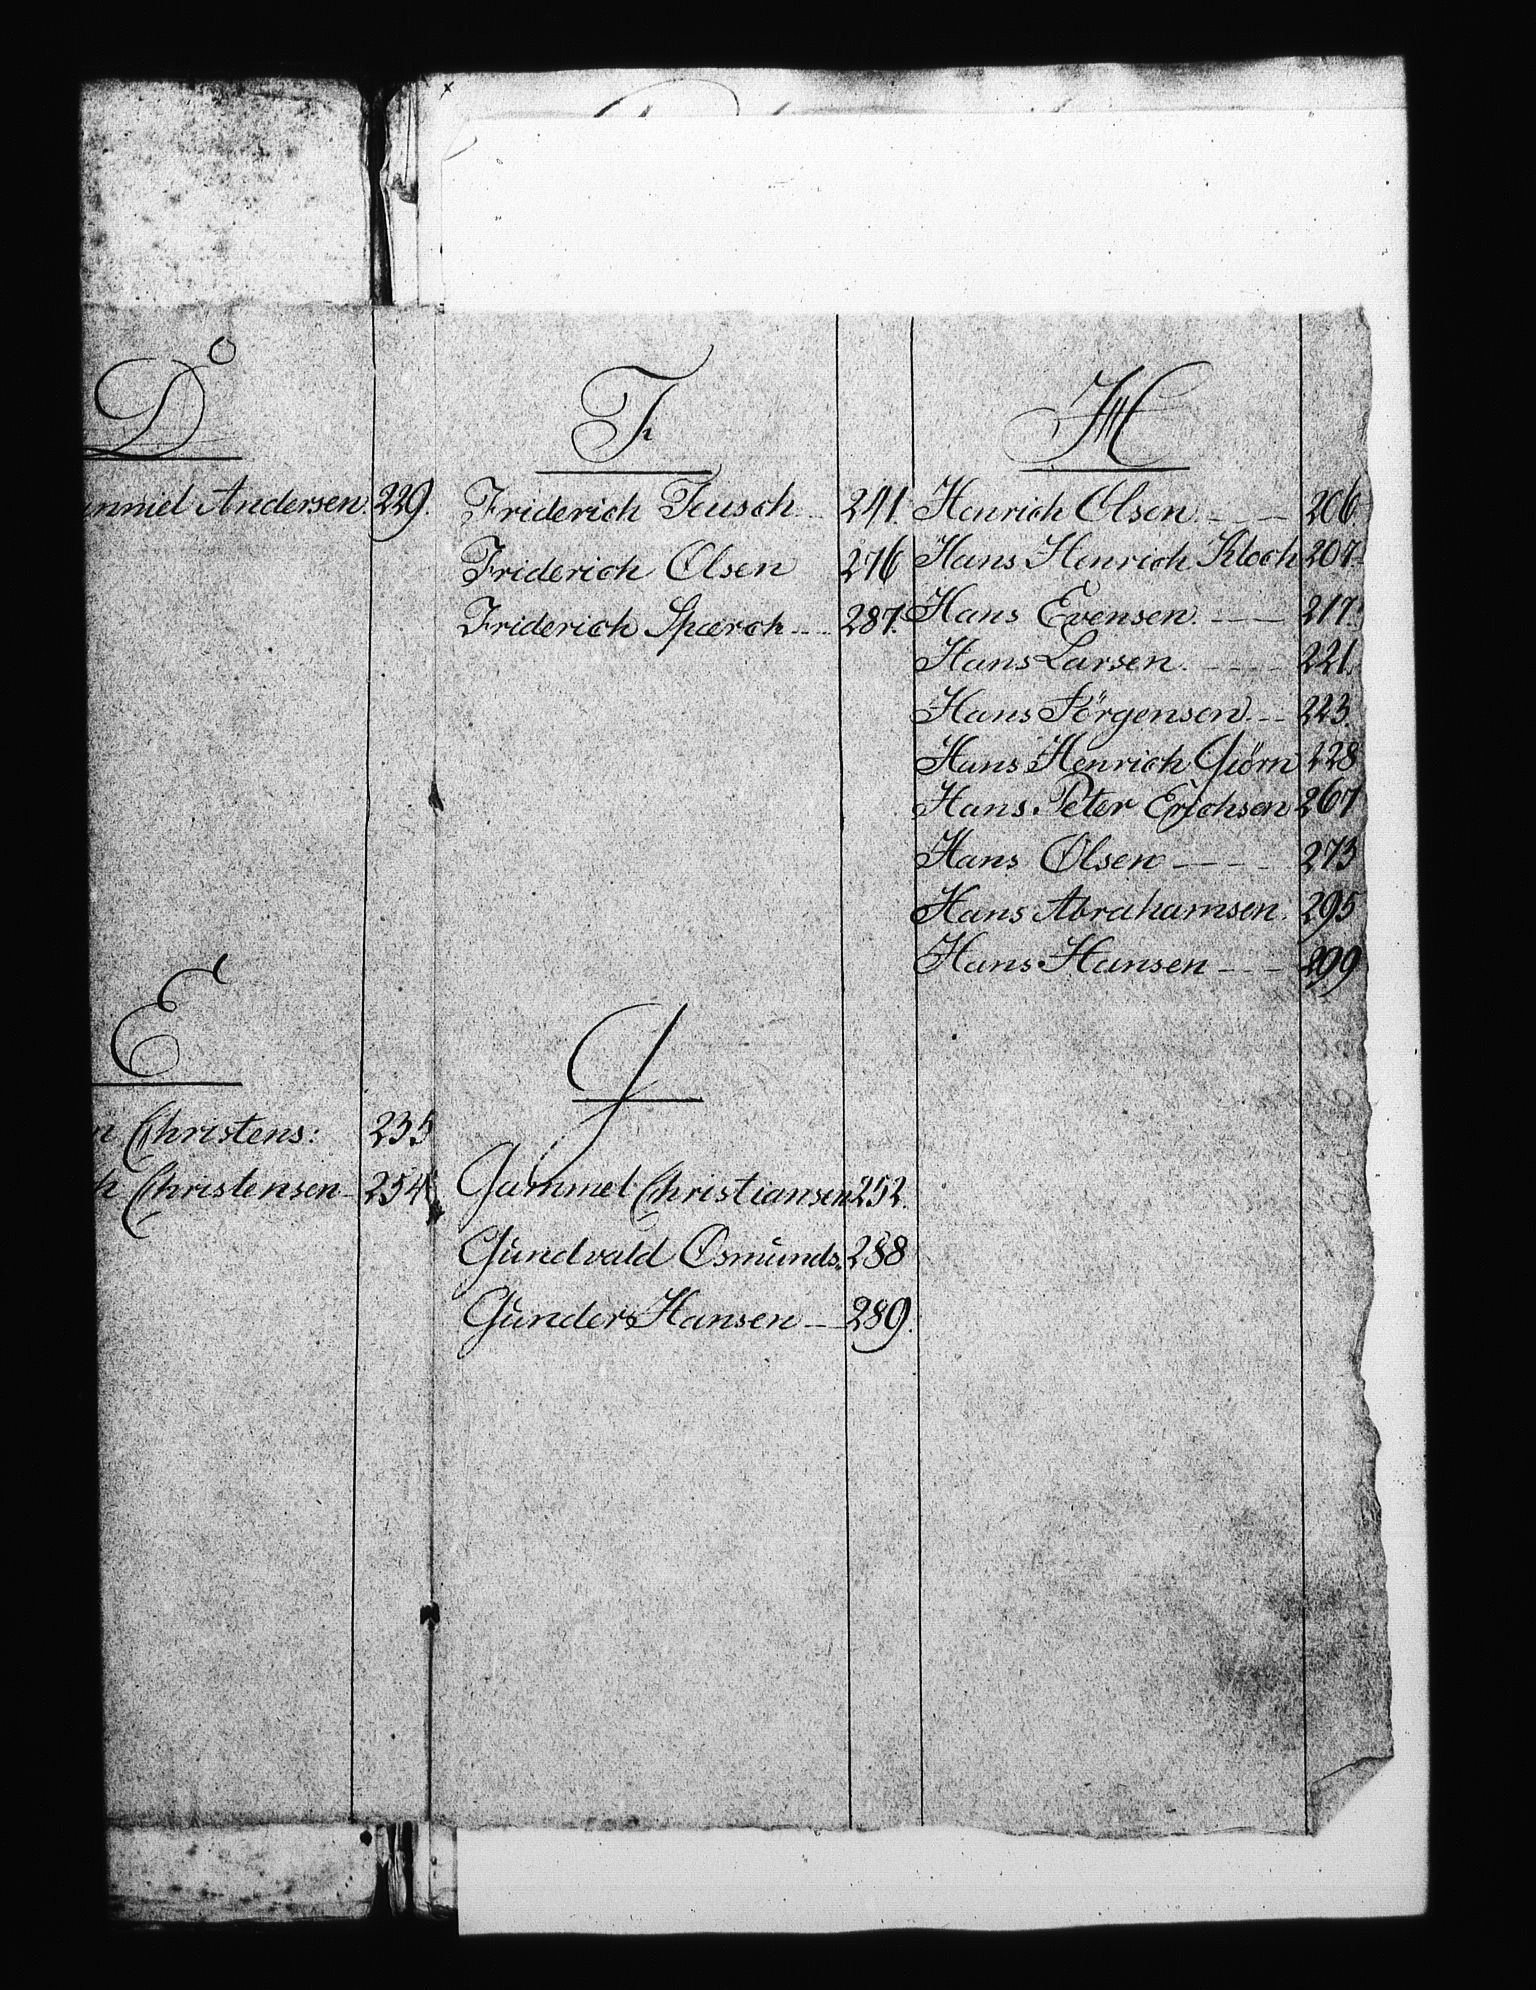 D
Andersen. 229.
E
n Christens: 235
h Christensen 254
F
Friderich Teusch 241.
Friderich Olsen 276
Friderich Spærch 287.
G
Gammel Christiansen 252.
Gundvald Osmunds. 288
Gunder Hansen 289.
H
Henrich Olsen 206.
Hans Henrich Kloch 207.
Hans Evensen 217.
Hans Larsen 221.
Hans Jörgensen 223.
Hans Henrich Giörn 228
Hans Peter Erichsen 267
Hans Olsen 273
Hans Abrahamsen. 295
Hans Hansen 299